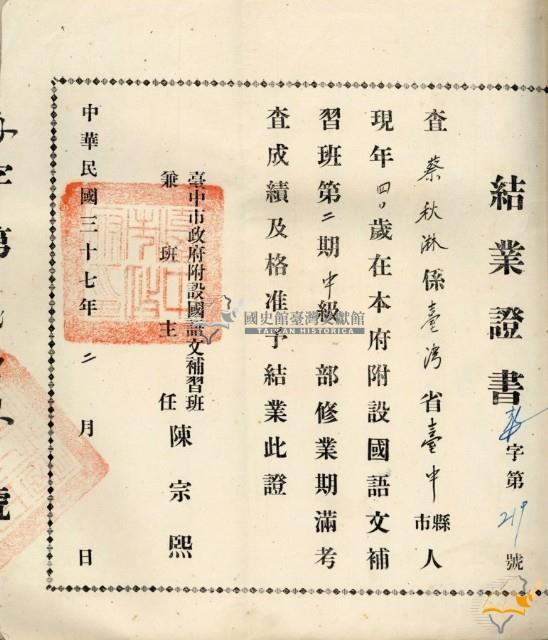 結業證書
字第219號
查蔡秋淋係臺灣省臺中市縣人
現年四〇歲在本府附設國語文補
習班第二期中級部修業期滿考
查成績及格准予結業此證
臺中市政府附設國語文補習班
兼班主任陳宗熙
中華民國三十七年二月 日
字第 號
國史館臺灣文獻館
TAIWAN HISTORICA